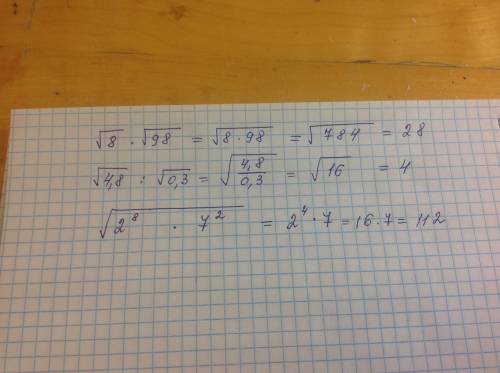 √8 · √98 = √8·98 = √784 = 28
√4,8 : √0,3 = √4,8/0,3 = √16 = 4
√2⁸ · 7² = 2⁴·7 = 16·7 = 112